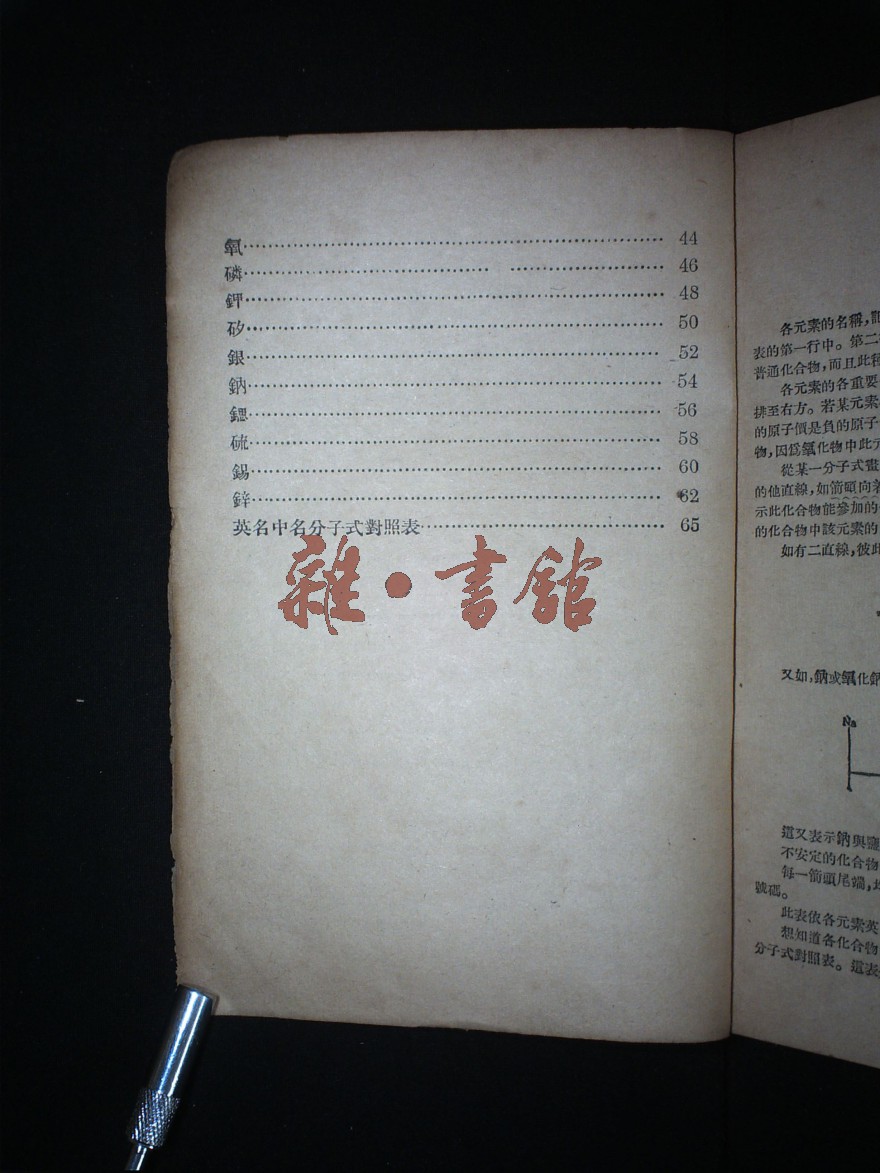 氧 44
磷 46
鉀 48
矽 50
銀 52
鈉 54
鍶 56
硫 58
錫 60
鋅 62
英名中名分子式對照表 65
雜•書館
各元素的名稱,
表的第一行中。第二
普通化合物,而且此種
各元素的各重要
排至右方。若某元素
的原子價是負的原子
物,因爲氧化物中此元
從某一分子式畫
的他直線,如箭頭向着
示此化合物能參加的
的化合物中該元素的
如有二直線,彼此
又如,鈉或氧化鈉
Na
這又表示鈉與鹽
不安定的化合物
每一箭頭尾端,
號碼。
此表依各元素英
想知道各化合物
分子式對照表。這表